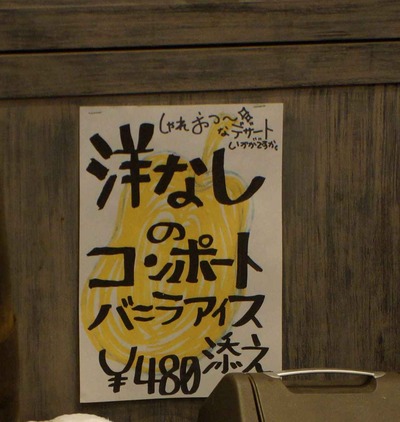 しゃれおつ～☆
なデザート
いかがですか。
洋なし
の
コンポート
バニラアイス
添え
¥480